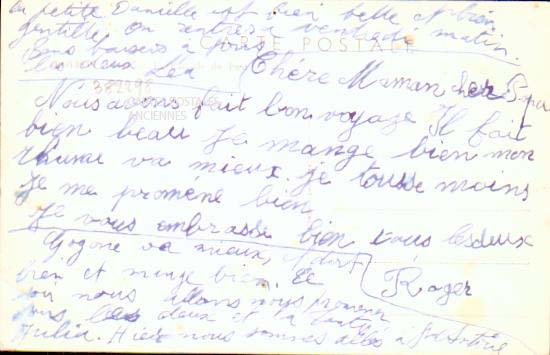 la petite Danielle est bien belle et bien
gentille. On rentrera vendredi matin.
Bons baisers à tous
les deux Léa
CARTE POSTALE
382298
CARTES POSTALES
ANCIENNES
Chère Maman cher Papa
Nous avons fait bon voyage Il fait
bien beau Je mange bien mon
rhume va mieux. je tousse moins
Je me promene bien
Je vous embrasse bien tous les deux
Roger
Gogone va mieux,
bien et mange bien. Ce
soir nous allons nous promener
tous les deux et la tante
Julia. Hier nous sommes allés à